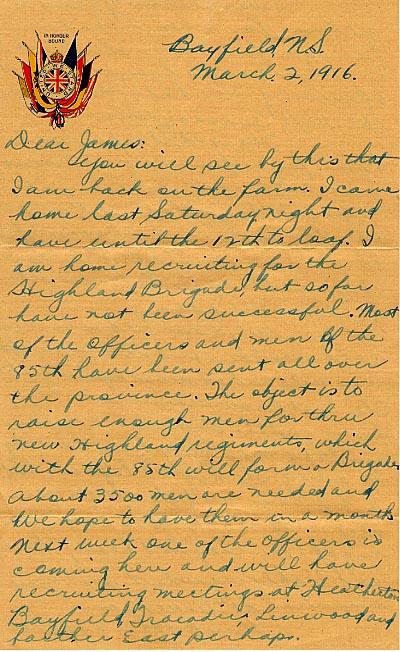 IN HONOUR
BOUND
Bayfield, N.S.
March. 2, 1916.
Dear James:
You will see by this that
I am back on the farm. I came
home last Saturday night and
have until the 12th to loaf. I
am home recruiting for the
Highland Brigade, but so far
have not been successful. Most
of the officers and men of the
85th have been sent all over
the province. The object is to
raise enough men for thru
new Highland regiments, which
with the 85th will form a Brigade
About 3500 men are needed and
we hope to have them in a month
Next week one of the officers is
coming here and will have
recruiting meetings at Heatherton
Bayfield, Tracadie, Linwood and
farther East perhaps.